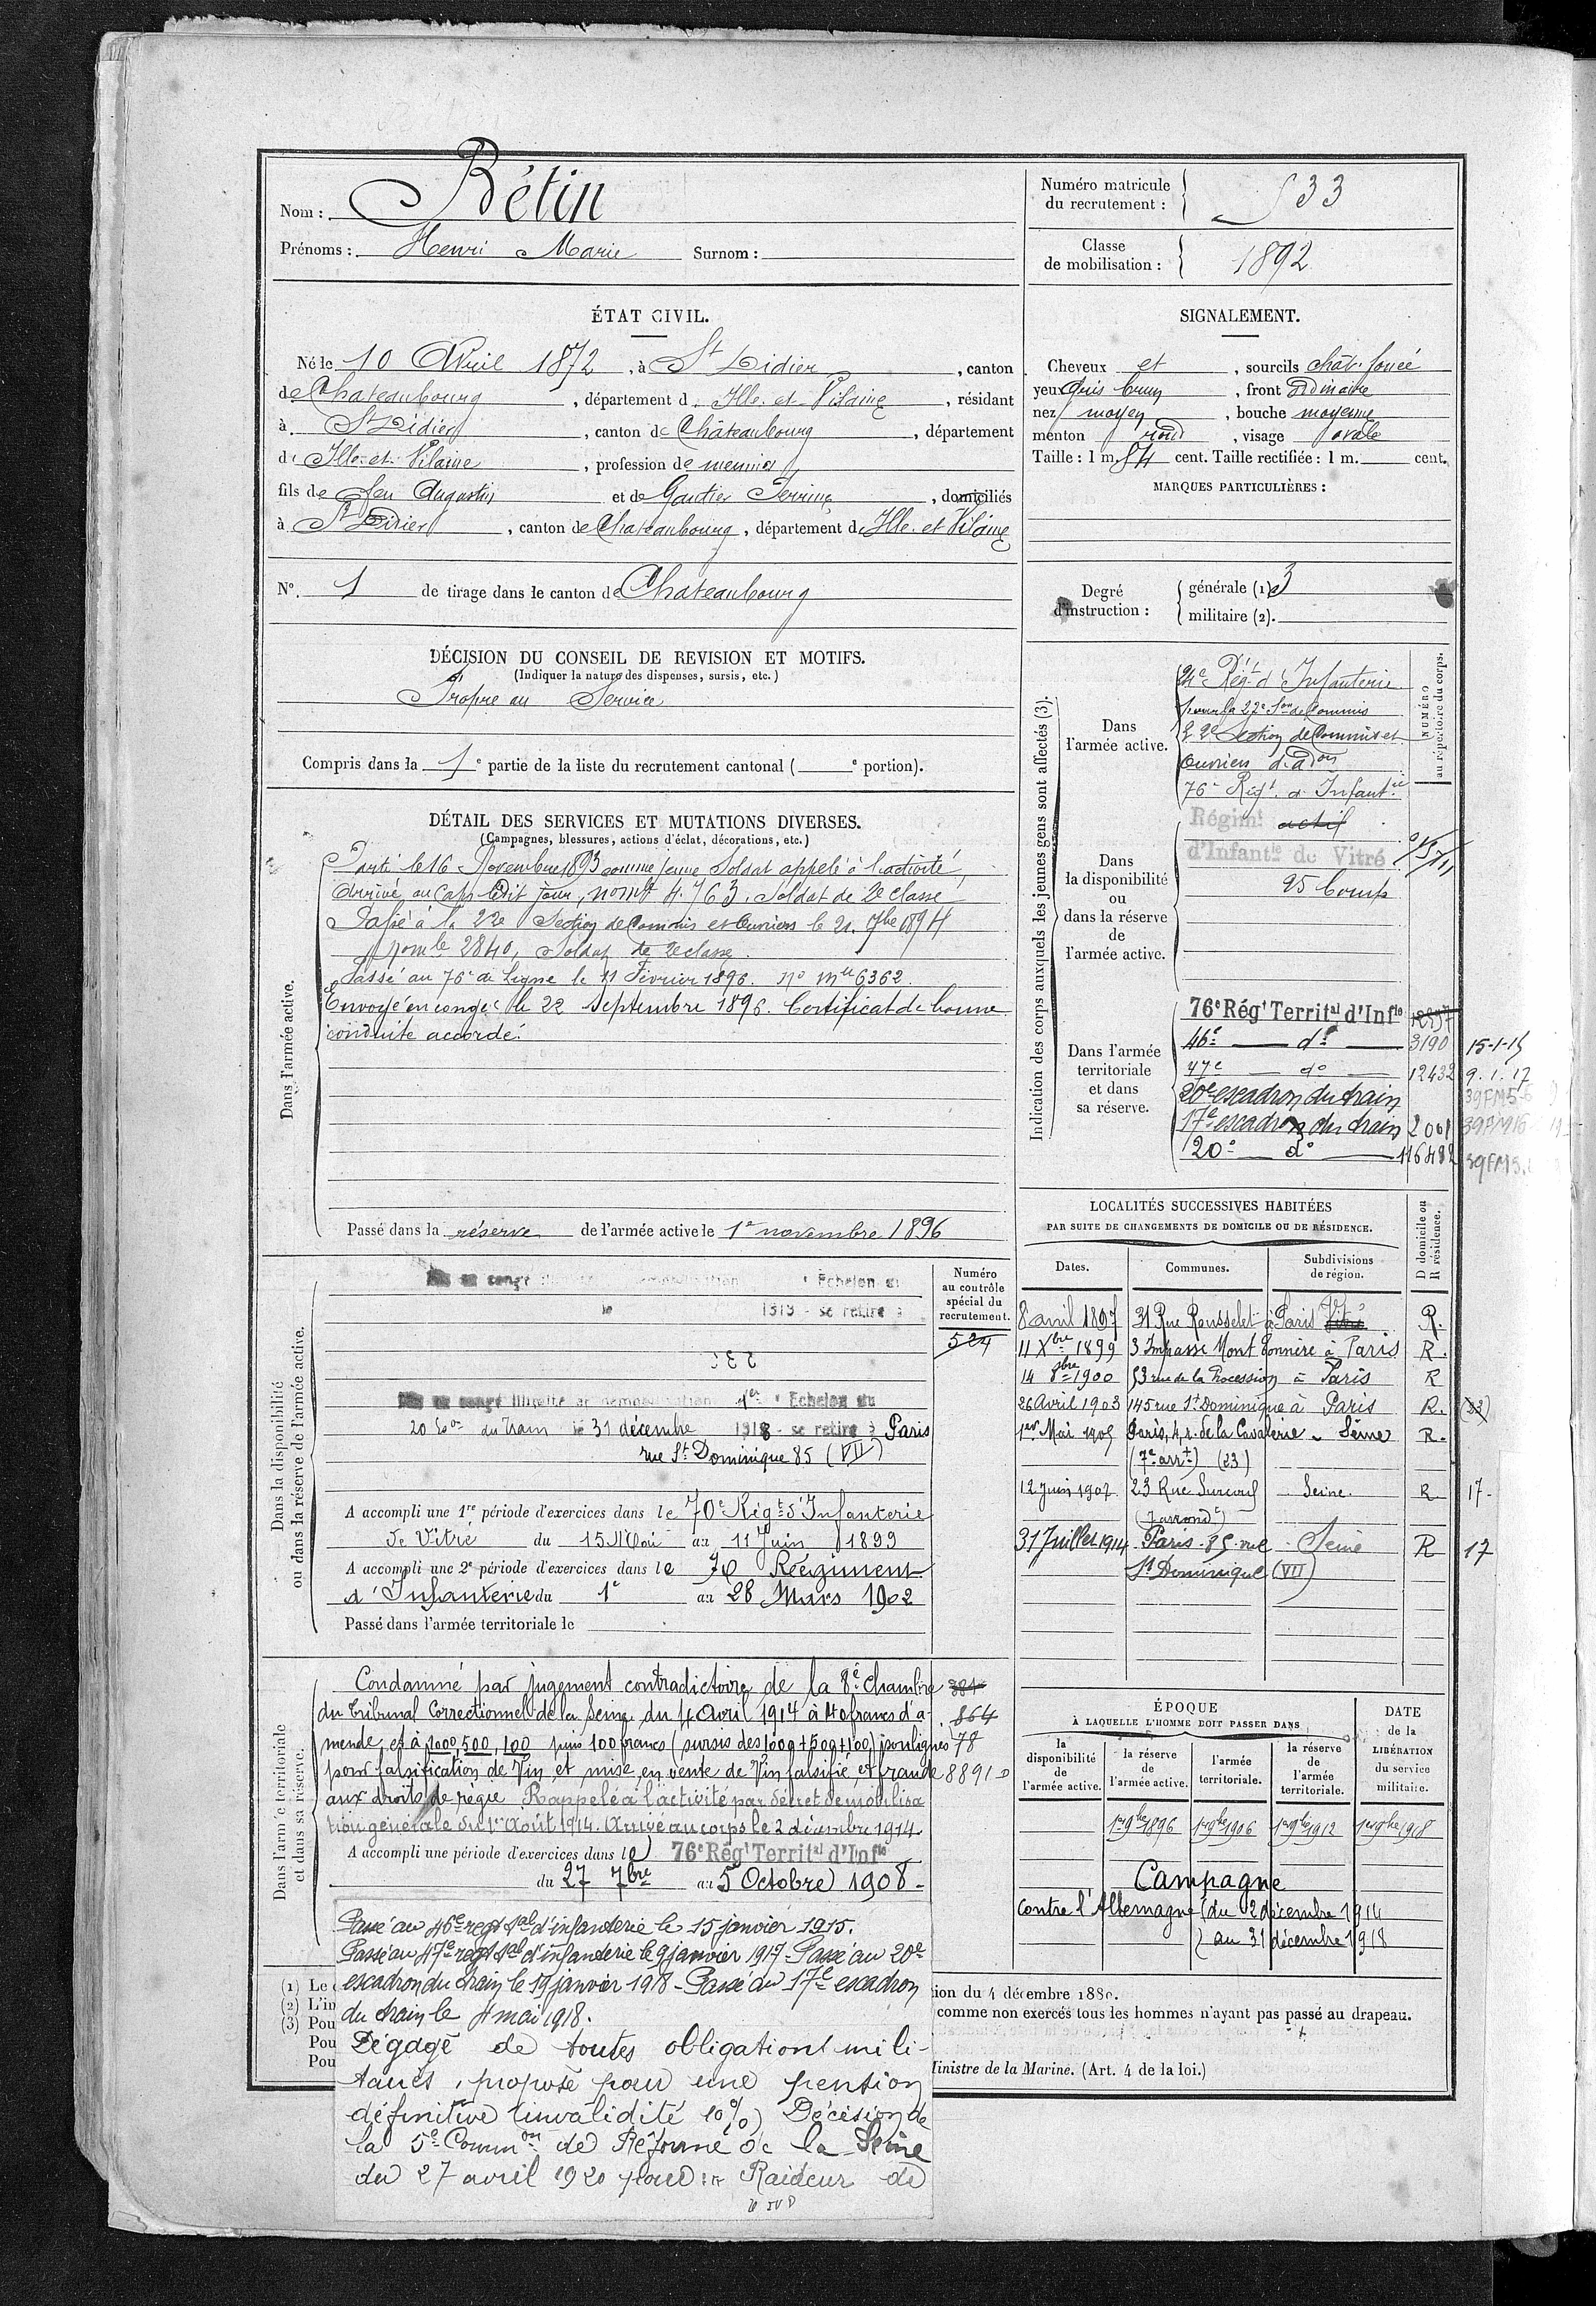 Nom : Bétin
Prénoms : Henri Marie Surnom :
Numéro matricule du recrutement : 533
Classe de mobilisation : 1892
ÉTAT CIVIL.
Né le 10 Avril 1872, à St Didier, canton
de Chateaubourg, département d. Ille-et-Vilaine, résidant
à St Didier, canton de Châteaubourg, département
d. Ille-et-Vilaine, profession de
fils de feu Augustin et de Gautier Perrine, domiciliés
à St Didier, canton de Chateaubourg, département d. Ille-et-Vilaine
SIGNALEMENT.
Cheveux et, sourcils chât. foncé
yeux gris brun, front ordinaire
nez moyen, bouche moyenne
menton rond, visage ovale
Taille : 1 m. 54 cent. Taille rectifiée : 1 m. cent.
MARQUES PARTICULIÈRES :
N°. 1 de tirage dans le canton de Chateaubourg
Degré d'instruction : générale (1) 3
militaire (2).
DÉCISION DU CONSEIL DE REVISION ET MOTIFS.
(Indiquer la nature des dispenses, sursis, etc.)
Propre au Service
Compris dans la 1e partie de la liste du recrutement cantonal ( e portion).
DÉTAIL DES SERVICES ET MUTATIONS DIVERSES.
(Campagnes, blessures, actions d'éclat, décorations, etc.)
Dans l'armée active.
Parti le 16 Novembre 1893 comme jeune Soldat appelé à l'activité,
Arrivé au Corps ledit jour, 4.763. Soldat de 2e classe
Passé à la 22e Section de Commis et Ouvriers le 21 7bre 1894
2840, Soldat de 2e classe.
Passé au 76e de Ligne le 11 Février 1896. No Mle 6362.
Envoyé en congé le 22 Septembre 1896. Certificat de bonne
conduite accordé.
Passé dans la réserve de l'armée active le 1er novembre 1896
Indication des corps auxquels les jeunes gens sont affectés (3).
NUMÉRO au répertoire du corps.
Dans l'armée active.
24e Régt d'Infanterie
pour la 22e Son de Commis
22e Section de Commis et
Ouvriers d'adon
76e Régt d'Infantie
Dans la disponibilité ou dans la réserve de l'armée active.
Régimt actif
d'Infantie de Vitré
Dans l'armée territoriale et dans sa réserve.
76e Régt Territal d'Infie
46e do 3190 15-1-15
47e do 12432 9.1.17
20e escadron du train
17e escadron du train 2001
20e do 116482
Dans la disponibilité ou dans la réserve de l'armée active.
Numéro au contrôle spécial du recrutement.
524
1919 - se retire à
Mis en congé illimité de démobilisation 1er Echelon du
20 Eon du train le 31 décembre 1918 - se retire à Paris
rue St Dominique 85 (VII)
A accompli une 1re période d'exercices dans le 70e Régt d'Infanterie
de Vitré du 15 Mai au 11 Juin 1899
A accompli une 2e période d'exercices dans le 70 Régiment
d'Infanterie du 1e au 28 Mars 1902
Passé dans l'armée territoriale le
LOCALITÉS SUCCESSIVES HABITÉES
PAR SUITE DE CHANGEMENTS DE DOMICILE OU DE RÉSIDENCE.
Dates. Communes. Subdivisions de région. D domicile ou R résidence.
8 avril 1897 31 Rue Rousselet à Paris Vitré R.
11 Xbre 1899 3 Impasse Mont Tonnerre à Paris R.
14 8bre 1900 53 rue de la Procession à Paris R
26 Avril 1903 145 rue St Dominique à Paris R. (23)
1er Mai 1905 Paris, 4, r. de la Cavalerie - Seine R.
(7e arrt) (23)
12 Juin 1907 23 Rue Surcouf Seine. R 17-
(7 arrondt)
31 Juillet 1914 Paris - 85 rue Seine R 17
St Dominique (VII)
Dans l'armée territoriale et dans sa réserve.
Condamné par jugement contradictoire de la 8e chambre
du Tribunal Correctionnel de la Seine du 4 Avril 1914 à francs d'a- 864
mende, et à 1000, 500, 100 puis 100 francs (sursis des 1000 + 500 + 100) soulignés 78
pour falsification de Vin, et mise en vente de Vin falsifié, et fraude 8891
aux droits de régie Rappelé à l'activité par décret de mobilisa
tion générale du 1er Août 1914. Arrivé au corps le 2 décembre 1914.
A accompli une période d'exercices dans le 76e Régt Territal d'Infie
du 27 7bre au 5 Octobre 1908 -
Passé au 46e regt tal d'infanterie le 15 janvier 1915.
Passé au 47e regt tal d'infanterie le 9 janvier 1917 - Passé au 20e
escadron du train le 19 janvier 1918 - Passé au 17e escadron
du train le 4 mai 1918.
Dégagé de toutes obligations mili-
taires, proposé pour une pension
définitive (invalidité 10%) Décision de
la 5e Common de Réforme de la Seine
du 27 avril 1920 pour : Raideur de
ÉPOQUE
À LAQUELLE L'HOMME DOIT PASSER DANS
la disponibilité de l'armée active.
la réserve de l'armée active. 1er 9bre 1896
l'armée territoriale. 1er 9bre 1906
la réserve de l'armée territoriale. 1er 9bre 1912
DATE de la LIBÉRATION du service militaire. 1er 9bre 1918
Campagne
contre l'Allemagne (du 2 décembre 1914
au 31 décembre 1918
(1) Le
(2) L'in
(3) Pou
Pou
Pou
tion du 4 décembre 1889.
comme non exercés tous les hommes n'ayant pas passé au drapeau.
Ministre de la Marine. (Art. 4 de la loi.)